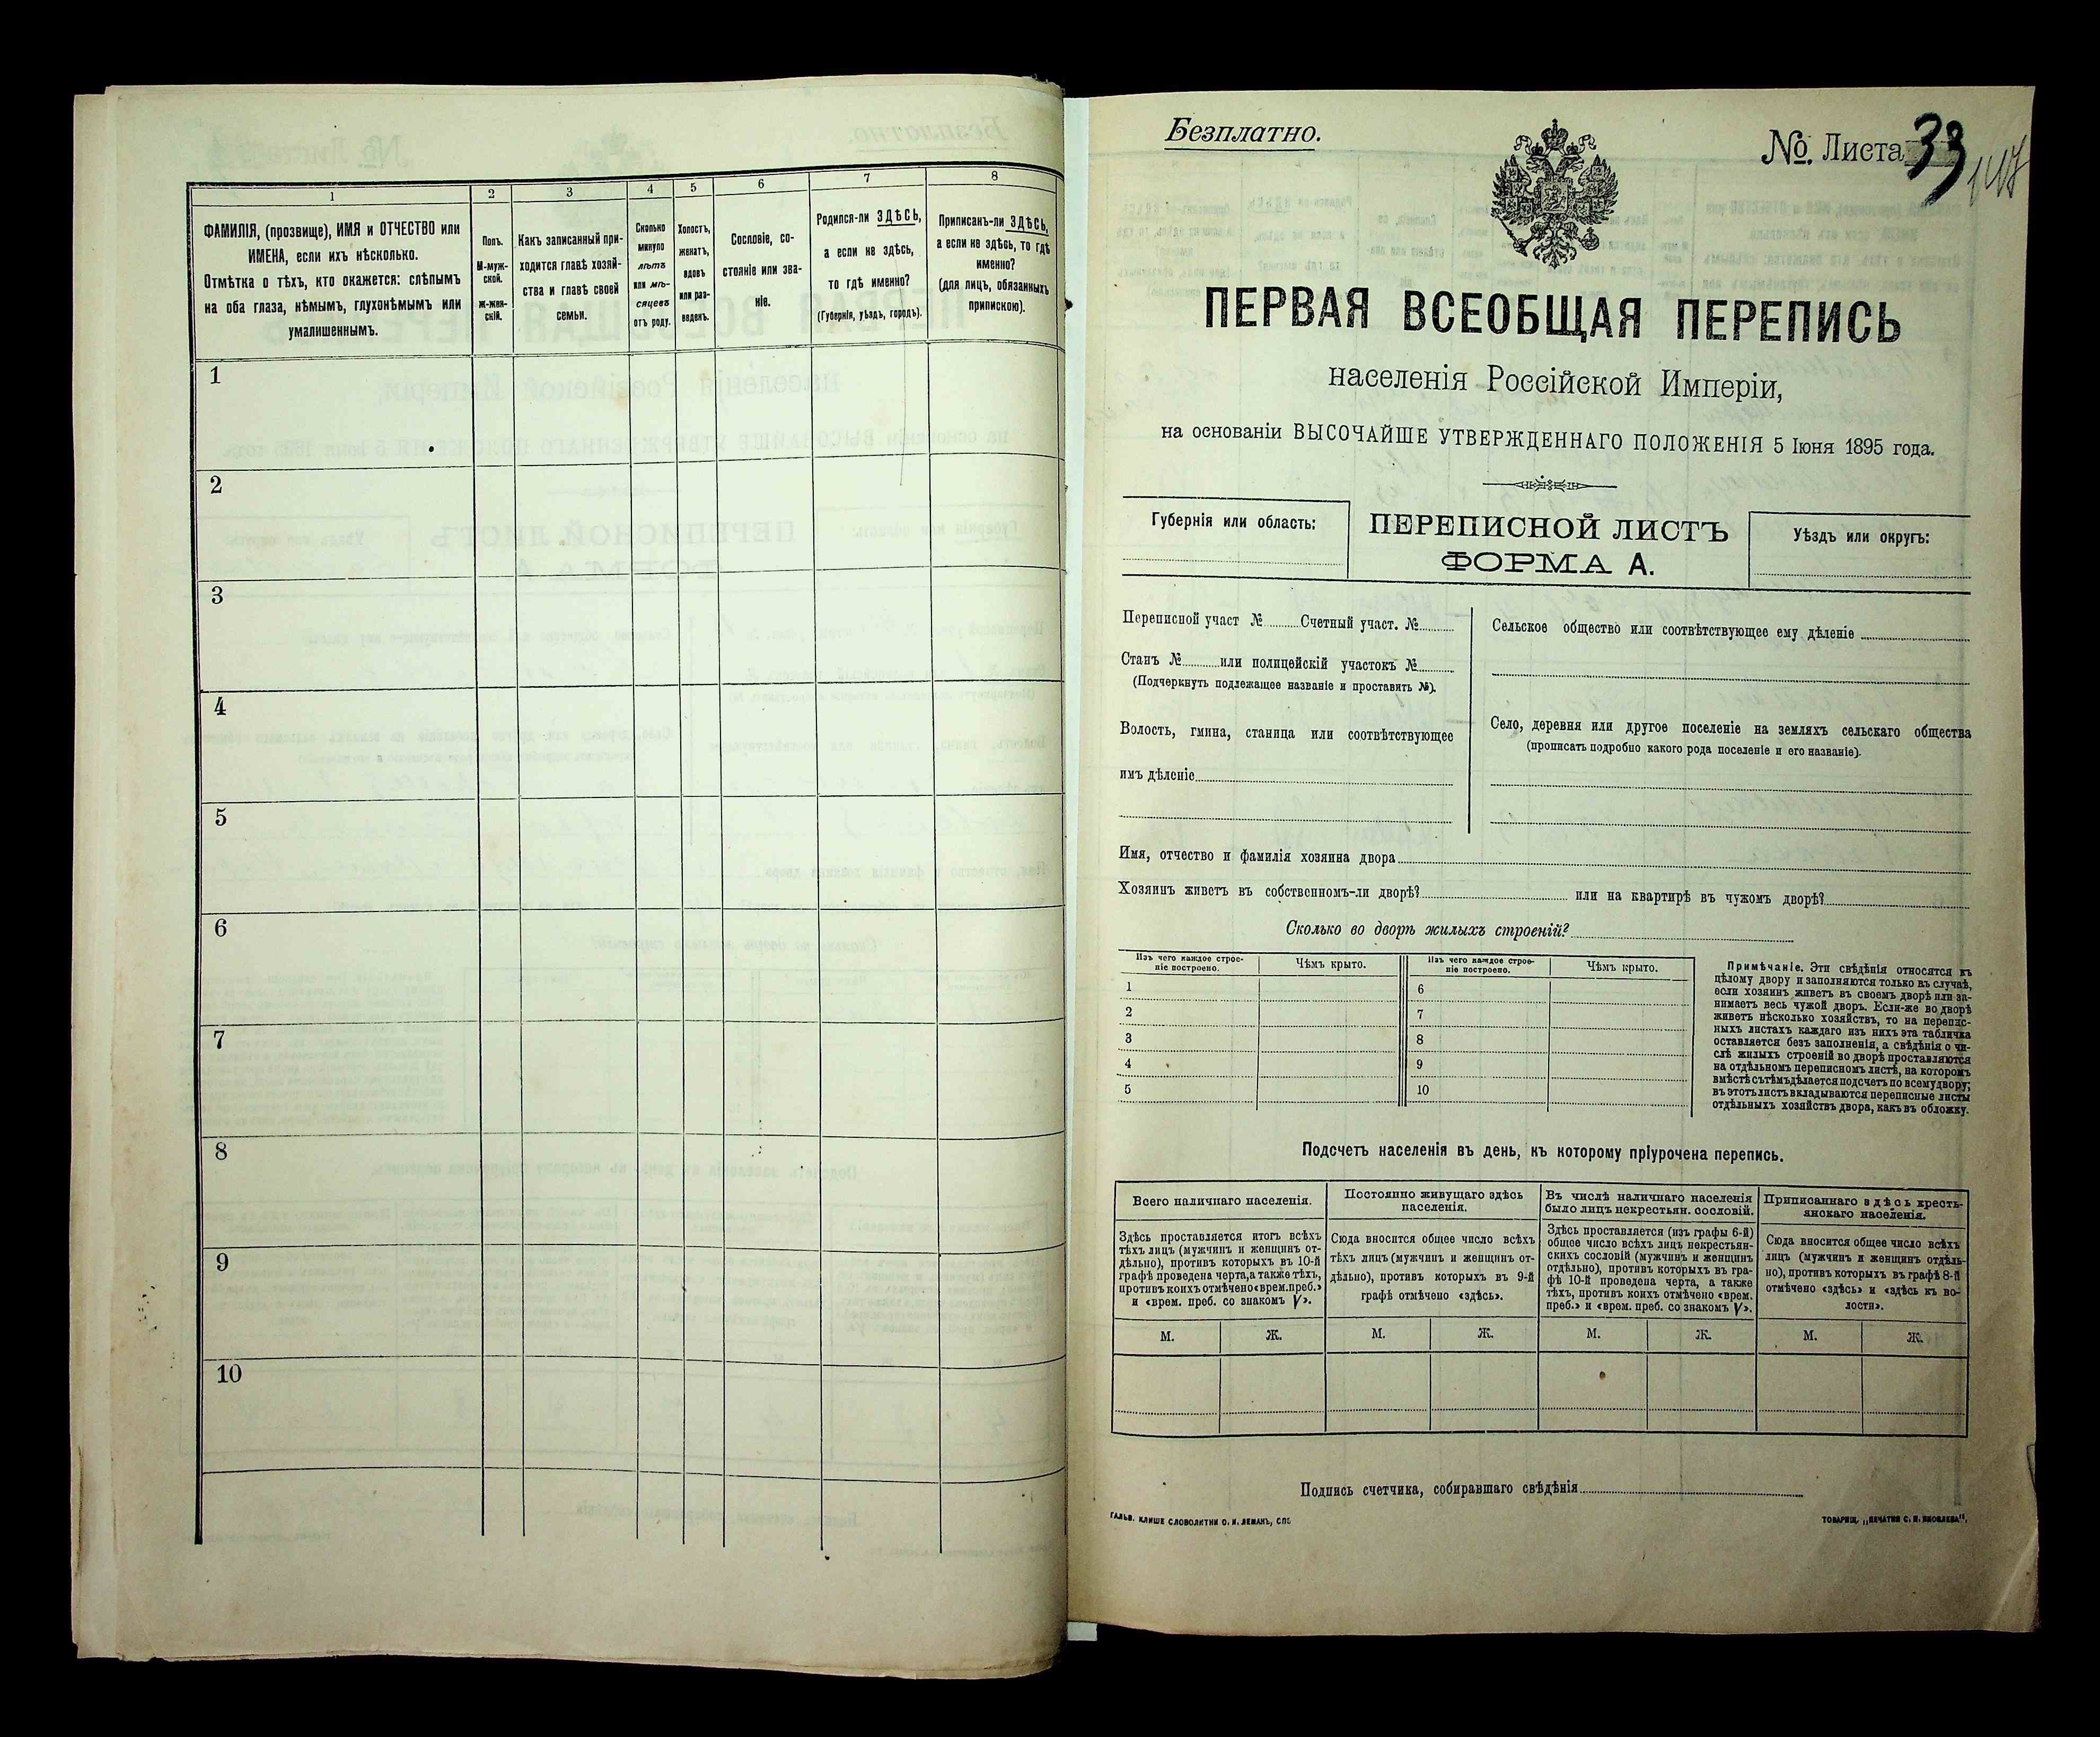 1
2
3
4
5
6
7
8
ФАМИЛІЯ, (прозвище), ИМЯ и ОТЧЕСТВО или
ИМЕНА, если ихъ нѣсколько.
Отмѣтка о тѣхъ, кто окажется: слѣпымъ
на оба глаза, нѣмымъ, глухонѣмымъ или
умалишеннымъ.
Полъ.
М-муж-
ской.
Ж-жен-
скій.
Какъ записанный при-
ходится главѣ хозяй-
ства и главѣ своей
семьи.
Сколько
минуло
лѣтъ
или мѣ-
сяцевъ
отъ роду.
Холостъ,
женатъ,
вдовъ
или раз-
веденъ.
Сословіе, со-
стояніе или зва-
ніе.
Родился-ли ЗДѢСЬ,
а если не здѣсь,
то гдѣ именно?
(Губернія, уѣздъ, городъ).
Приписанъ-ли ЗДѢСЬ,
а если не здѣсь, то гдѣ
именно?
(для лицъ, обязанныхъ
припискою).
1
2
3
4
5
6
7
8
9
10
Безплатно.
№. Листа 39
ПЕРВАЯ ВСЕОБЩАЯ ПЕРЕПИСЬ
населенія Россійской Имперіи,
на основаніи ВЫСОЧАЙШЕ УТВЕРЖДЕННАГО ПОЛОЖЕНІЯ 5 Іюня 1895 года.
Губернія или область:
ПЕРЕПИСНОЙ ЛИСТЪ
ФОРМА А.
Уѣздъ или округъ:
Переписной участ № Счетный участ. №
Станъ № или полицейскій участокъ №
(Подчеркнуть подлежащее названіе и проставить №).
Волость, гмина, станица или соотвѣтствующее
имъ дѣленіе
Сельское общество или соотвѣтствующее ему дѣленіе
Село, деревня или другое поселеніе на земляхъ сельскаго общества
(прописать подробно какого рода поселеніе и его названіе).
Имя, отчество и фамилія хозяина двора
Хозяинъ живетъ въ собственномъ-ли дворѣ? или на квартирѣ въ чужомъ дворѣ?
Сколько во дворѣ жилыхъ строеній?
Изъ чего каждое строе-
ніе построено.
Чѣмъ крыто.
Изъ чего каждое строе-
ніе построено.
Чѣмъ крыто.
1
2
3
4
5
6
7
8
9
10
Примѣчаніе. Эти свѣдѣнія относятся къ
цѣлому двору и заполняются только въ случаѣ,
если хозяинъ живетъ въ своемъ дворѣ или за-
нимаетъ весь чужой дворъ. Если-же во дворѣ
живетъ нѣсколько хозяйствъ, то на перепис-
ныхъ листахъ каждаго изъ нихъ эта табличка
оставляется безъ заполненія, а свѣдѣнія о чи-
слѣ жилыхъ строеній во дворѣ проставляются
на отдѣльномъ переписномъ листѣ, на которомъ
вмѣстѣ съ тѣмъ дѣлается подсчетъ по всему двору;
въ этотъ листъ вкладываются переписные листы
отдѣльныхъ хозяйствъ двора, какъ въ обложку.
Подсчетъ населенія въ день, къ которому пріурочена перепись.
Всего наличнаго населенія.
Здѣсь проставляется итогъ всѣхъ
тѣхъ лицъ (мужчинъ и женщинъ от-
дѣльно), противъ которыхъ въ 10-й
графѣ проведена черта, а также тѣхъ,
противъ коихъ отмѣчено «врем. преб.»
и «врем. преб. со знакомъ V».
Постоянно живущаго здѣсь
населенія.
Сюда вносится общее число всѣхъ
тѣхъ лицъ (мужчинъ и женщинъ от-
дѣльно), противъ которыхъ въ 9-й
графѣ отмѣчено «здѣсь».
Въ числѣ наличнаго населенія
было лицъ некрестьян. сословій.
Здѣсь проставляется (изъ графы 6-й)
общее число всѣхъ лицъ некрестьян-
скихъ сословій (мужчинъ и женщинъ
отдѣльно), противъ которыхъ въ гра-
фѣ 10-й проведена черта, а также
тѣхъ, противъ коихъ отмѣчено «врем.
преб.» и «врем. преб. со знакомъ V».
Приписаннаго здѣсь кресть-
янскаго населенія.
Сюда вносится общее число всѣхъ
лицъ (мужчинъ и женщинъ отдѣль-
но), противъ которыхъ въ графѣ 8-й
отмѣчено «здѣсь» и «здѣсь къ во-
лости».
М. Ж. М. Ж. М. Ж. М. Ж.
Подпись счетчика, собиравшаго свѣдѣнія
ГАЛЬВ. КЛИШЕ СЛОВОЛИТНИ О. И. ЛЕМАНЪ, СПБ.
ТОВАРИЩ. „ПЕЧАТНЯ С. П. ЯКОВЛЕВА".